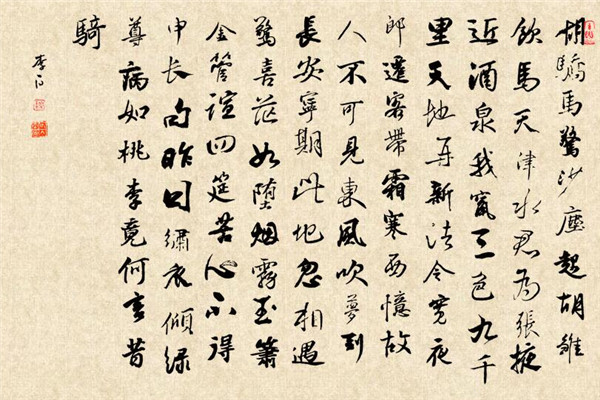 胡驕馬驚沙塵起胡雛
飲馬天津水君為張掖
近酒泉我竄三色九千
里天地再新法令寬夜
郎遷客帶霜寒西憶故
人不可見東風吹夢到
長安寧期此地忽相遇
驚喜茫如墮烟霧玉簫
金管諠四筵苦心不得
申长句昨日繡衣傾綠
尊病如桃李竟何言昔
騎
李白